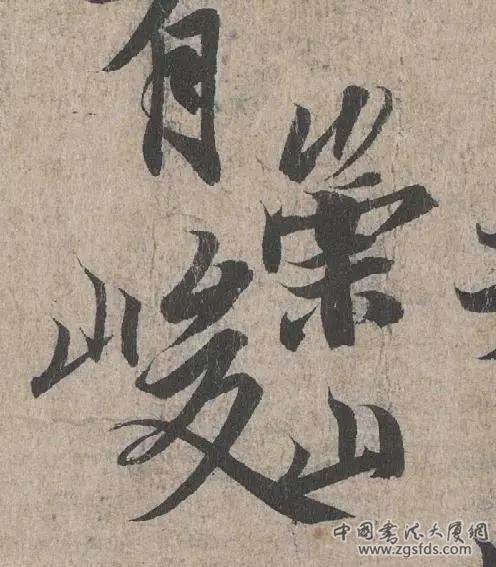 有崇山峻
中國書法大厦網
www.zgsfds.com